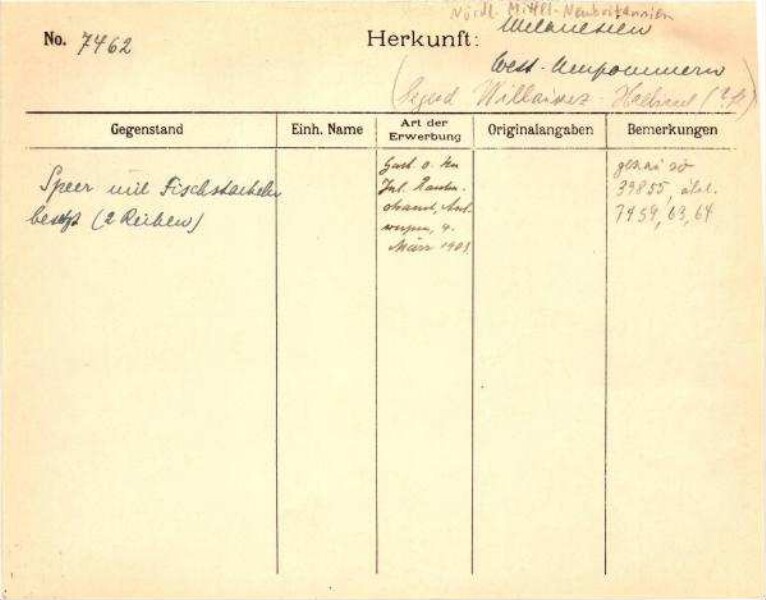 Nördl. Mittel-Neubritannien
No. 7462
Herkunft: Melanesien
West-Neupommern
(Gegend Willaumez-Halbinsel (?)
Gegenstand
Einh. Name
Art der
Erwerbung
Originalangaben
Bemerkungen
Speer mit Fischstacheln
besetzt (2 Reihen)
werpen, 4.
März 1901
genau so
39855, ähnl.
7459, 63, 64